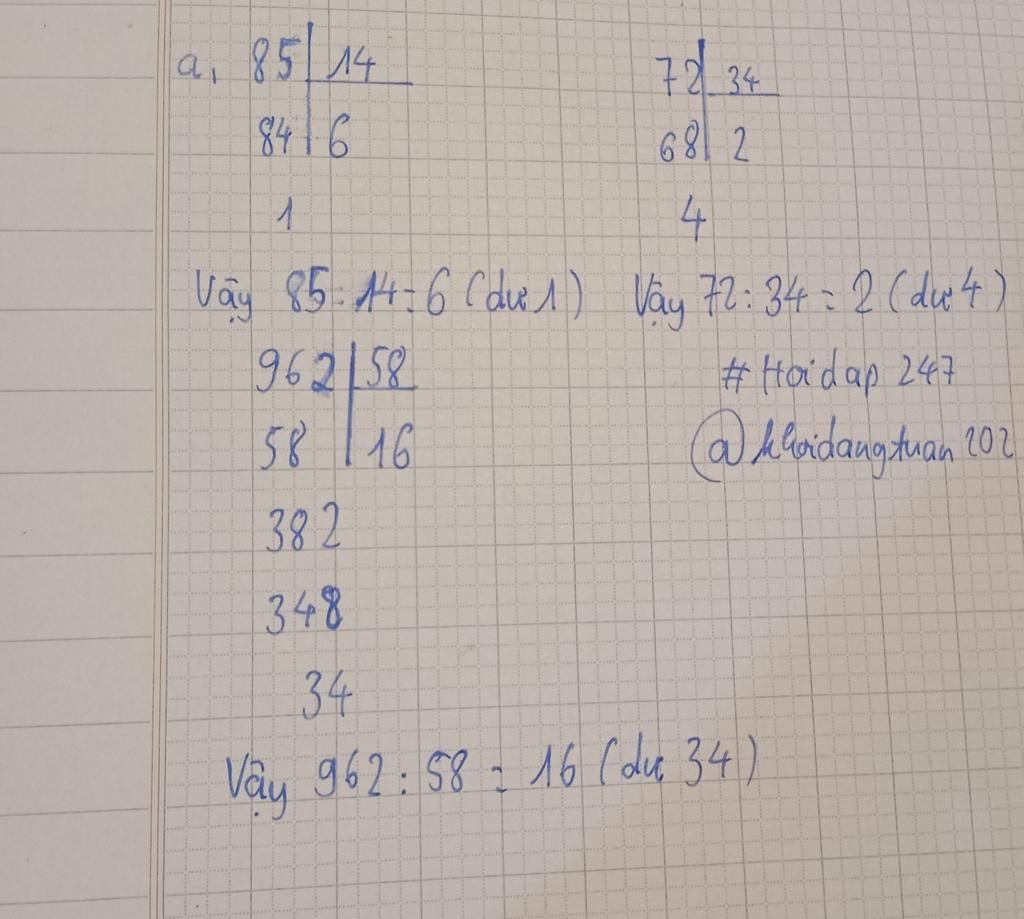 a, 85 14 72 34
84 6 68 2
1 4
Vậy 85 : 14 = 6 (dư 1) Vậy 72 : 34 = 2 (dư 4)
962 58 # Hoidap 247
58 16 @khoidangtuan 202
382
348
34
Vậy 962 : 58 = 16 (dư 34)